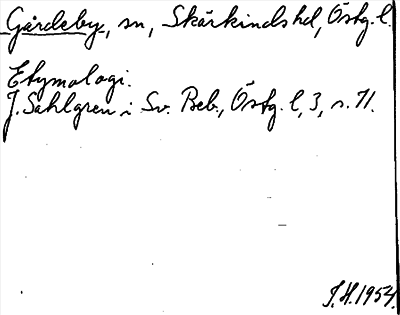 Gårdeby, sn, Skärkinds hd, Östg. l.
Etymologi.
J. Sahlgren i Sv. Beb., Östg. l, 3, s. 71.
J. H. 1954.